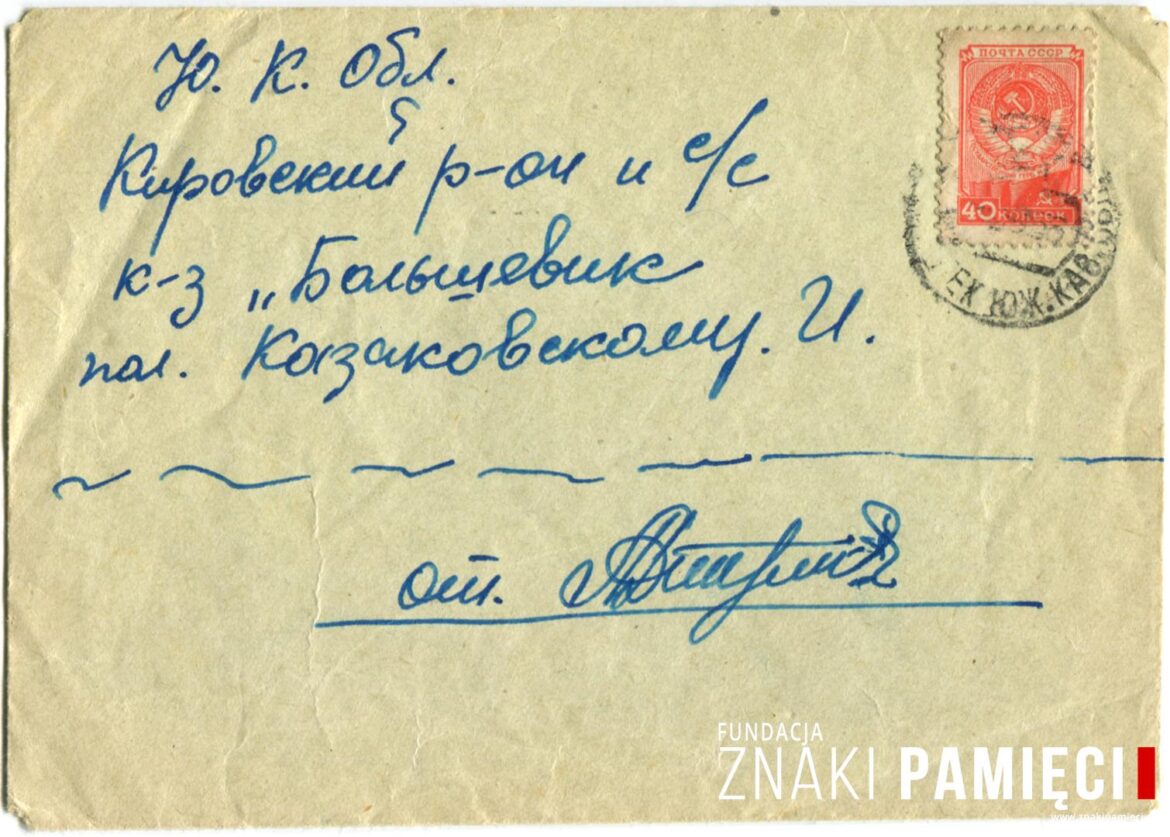 Ю. К. Обл.
Кировский р-он и с/с
к-з „Большевик
пол. Казаковскому. И.
от.
ПОЧТА СССР
40 КОПЕЕК
ЕК ЮЖ.КАЗ.
FUNDACJA
ZNAKI PAMIĘCI
www.znakipamieci